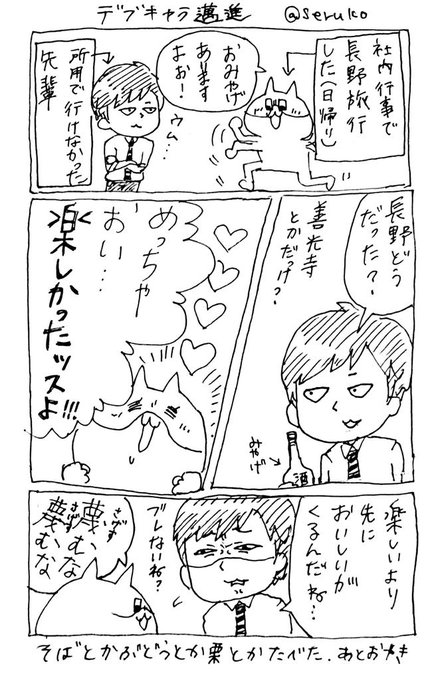 デブキャラ邁進 @seruko
社内行事で
長野旅行
した(日帰り)
おみやげ
あります
よお!
ウム…
所用で行けなかった
先輩
長野どう
だった?
善光寺
とかだっけ?
みやげ
酒
めっちゃ
おい…
楽しかったッスよ!!!
楽しいより
先に
おいしいが
くるんだね…
ブレないね?
さげず
蔑むな
さげず
蔑むな
そばとかぶどうとか栗とかたべた.あとおやき